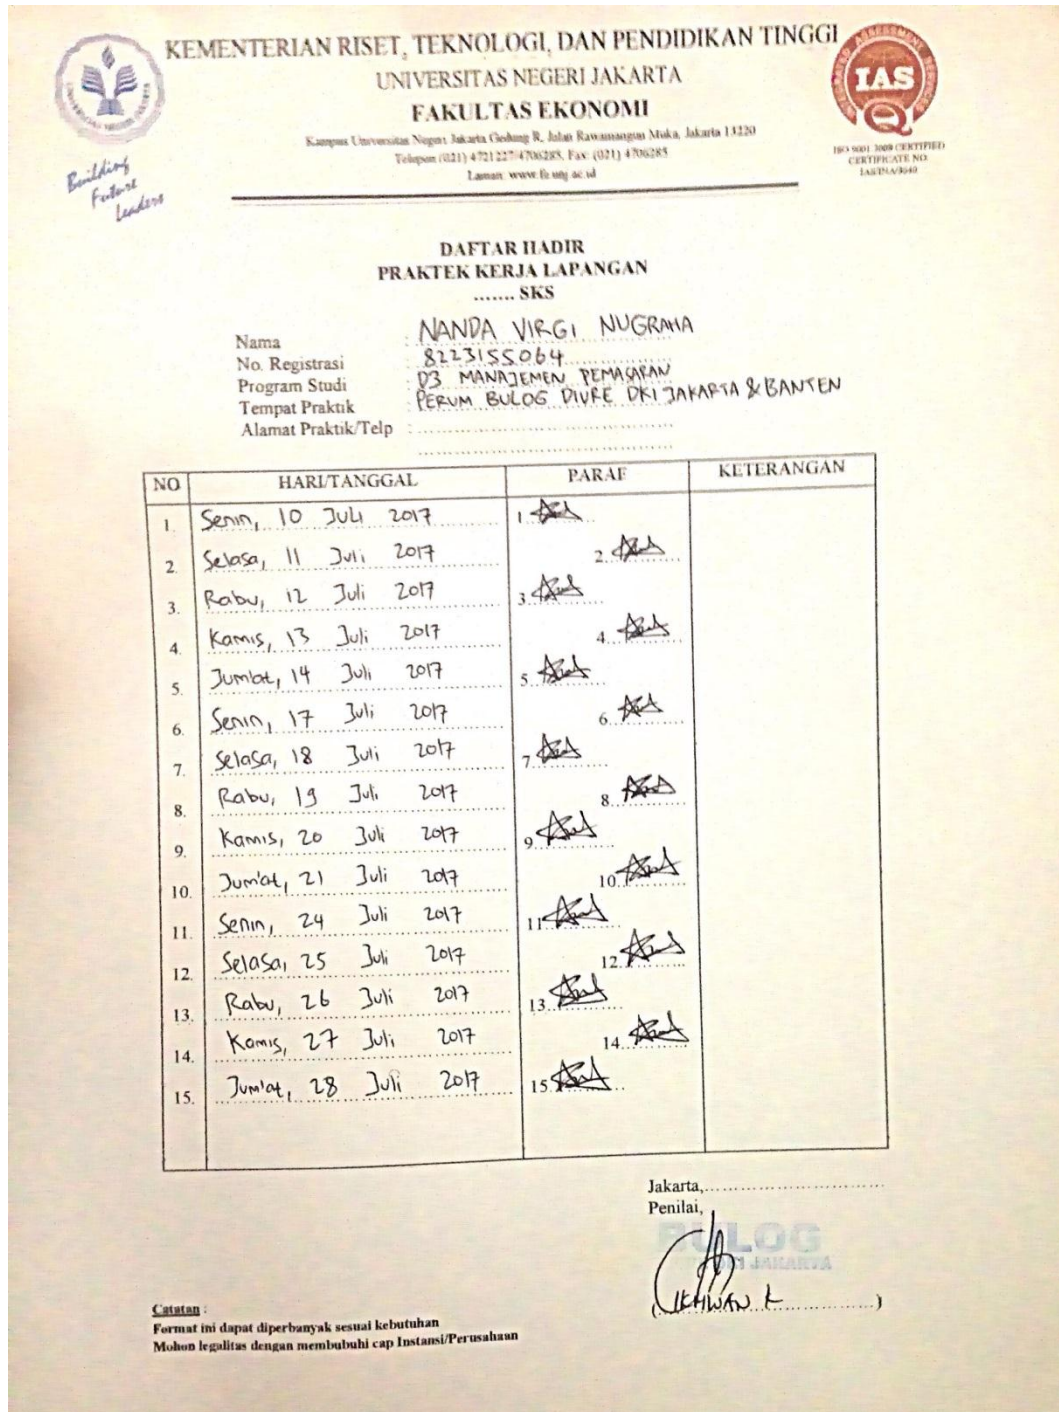 KEMENTERIAN RISET, TEKNOLOGI, DAN PENDIDIKAN TINGGI
UNIVERSITAS NEGERI JAKARTA
FAKULTAS EKONOMI
Kampus Universitas Negeri Jakarta Gedung R, Jalan Rawamangun Muka, Jakarta 13220
Telepon (021) 4721227/4706285, Fax: (021) 4706285
Laman: www.fe.unj.ac.id
UNIVERSITAS NEGERI JAKARTA
Building
Future
Leaders
IAS
ISO 9001:2008 CERTIFIED
CERTIFICATE NO.
DAFTAR HADIR
PRAKTEK KERJA LAPANGAN
....... SKS
Nama : NANDA VIRGI NUGRAHA
No. Registrasi : 8223155064
Program Studi : D3 MANAJEMEN PEMASARAN
Tempat Praktik : PERUM BULOG DIVRE DKI JAKARTA & BANTEN
Alamat Praktik/Telp :
NO HARI/TANGGAL PARAF KETERANGAN
1. Senin, 10 JULI 2017 1.
2. Selasa, 11 Juli 2017 2.
3. Rabu, 12 Juli 2017 3.
4. Kamis, 13 Juli 2017 4.
5. Jum'at, 14 Juli 2017 5.
6. Senin, 17 Juli 2017 6.
7. Selasa, 18 Juli 2017 7.
8. Rabu, 19 Juli 2017 8.
9. Kamis, 20 Juli 2017 9.
10. Jum'at, 21 Juli 2017 10.
11. Senin, 24 Juli 2017 11.
12. Selasa, 25 Juli 2017 12.
13. Rabu, 26 Juli 2017 13.
14. Kamis, 27 Juli 2017 14.
15. Jum'at, 28 Juli 2017 15.
Jakarta,
Penilai,
BULOG
DKI JAKARTA
(IKHWAN K)
Catatan :
Format ini dapat diperbanyak sesuai kebutuhan
Mohon legalitas dengan membubuhi cap Instansi/Perusahaan